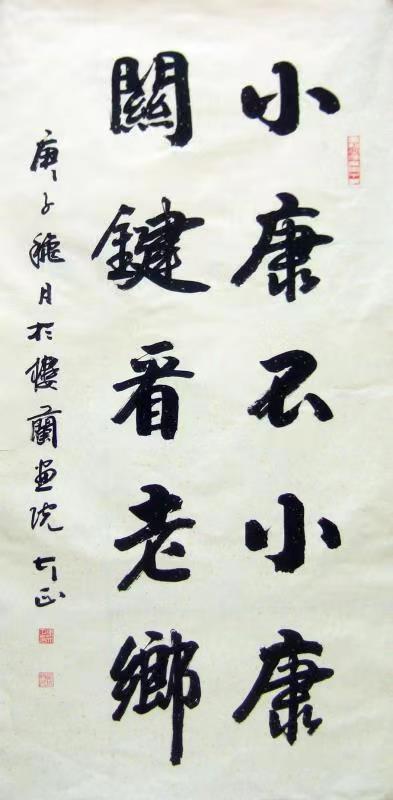 小康不小康
關鍵看老鄉
庚子龝月於樓蘭畫院 大正